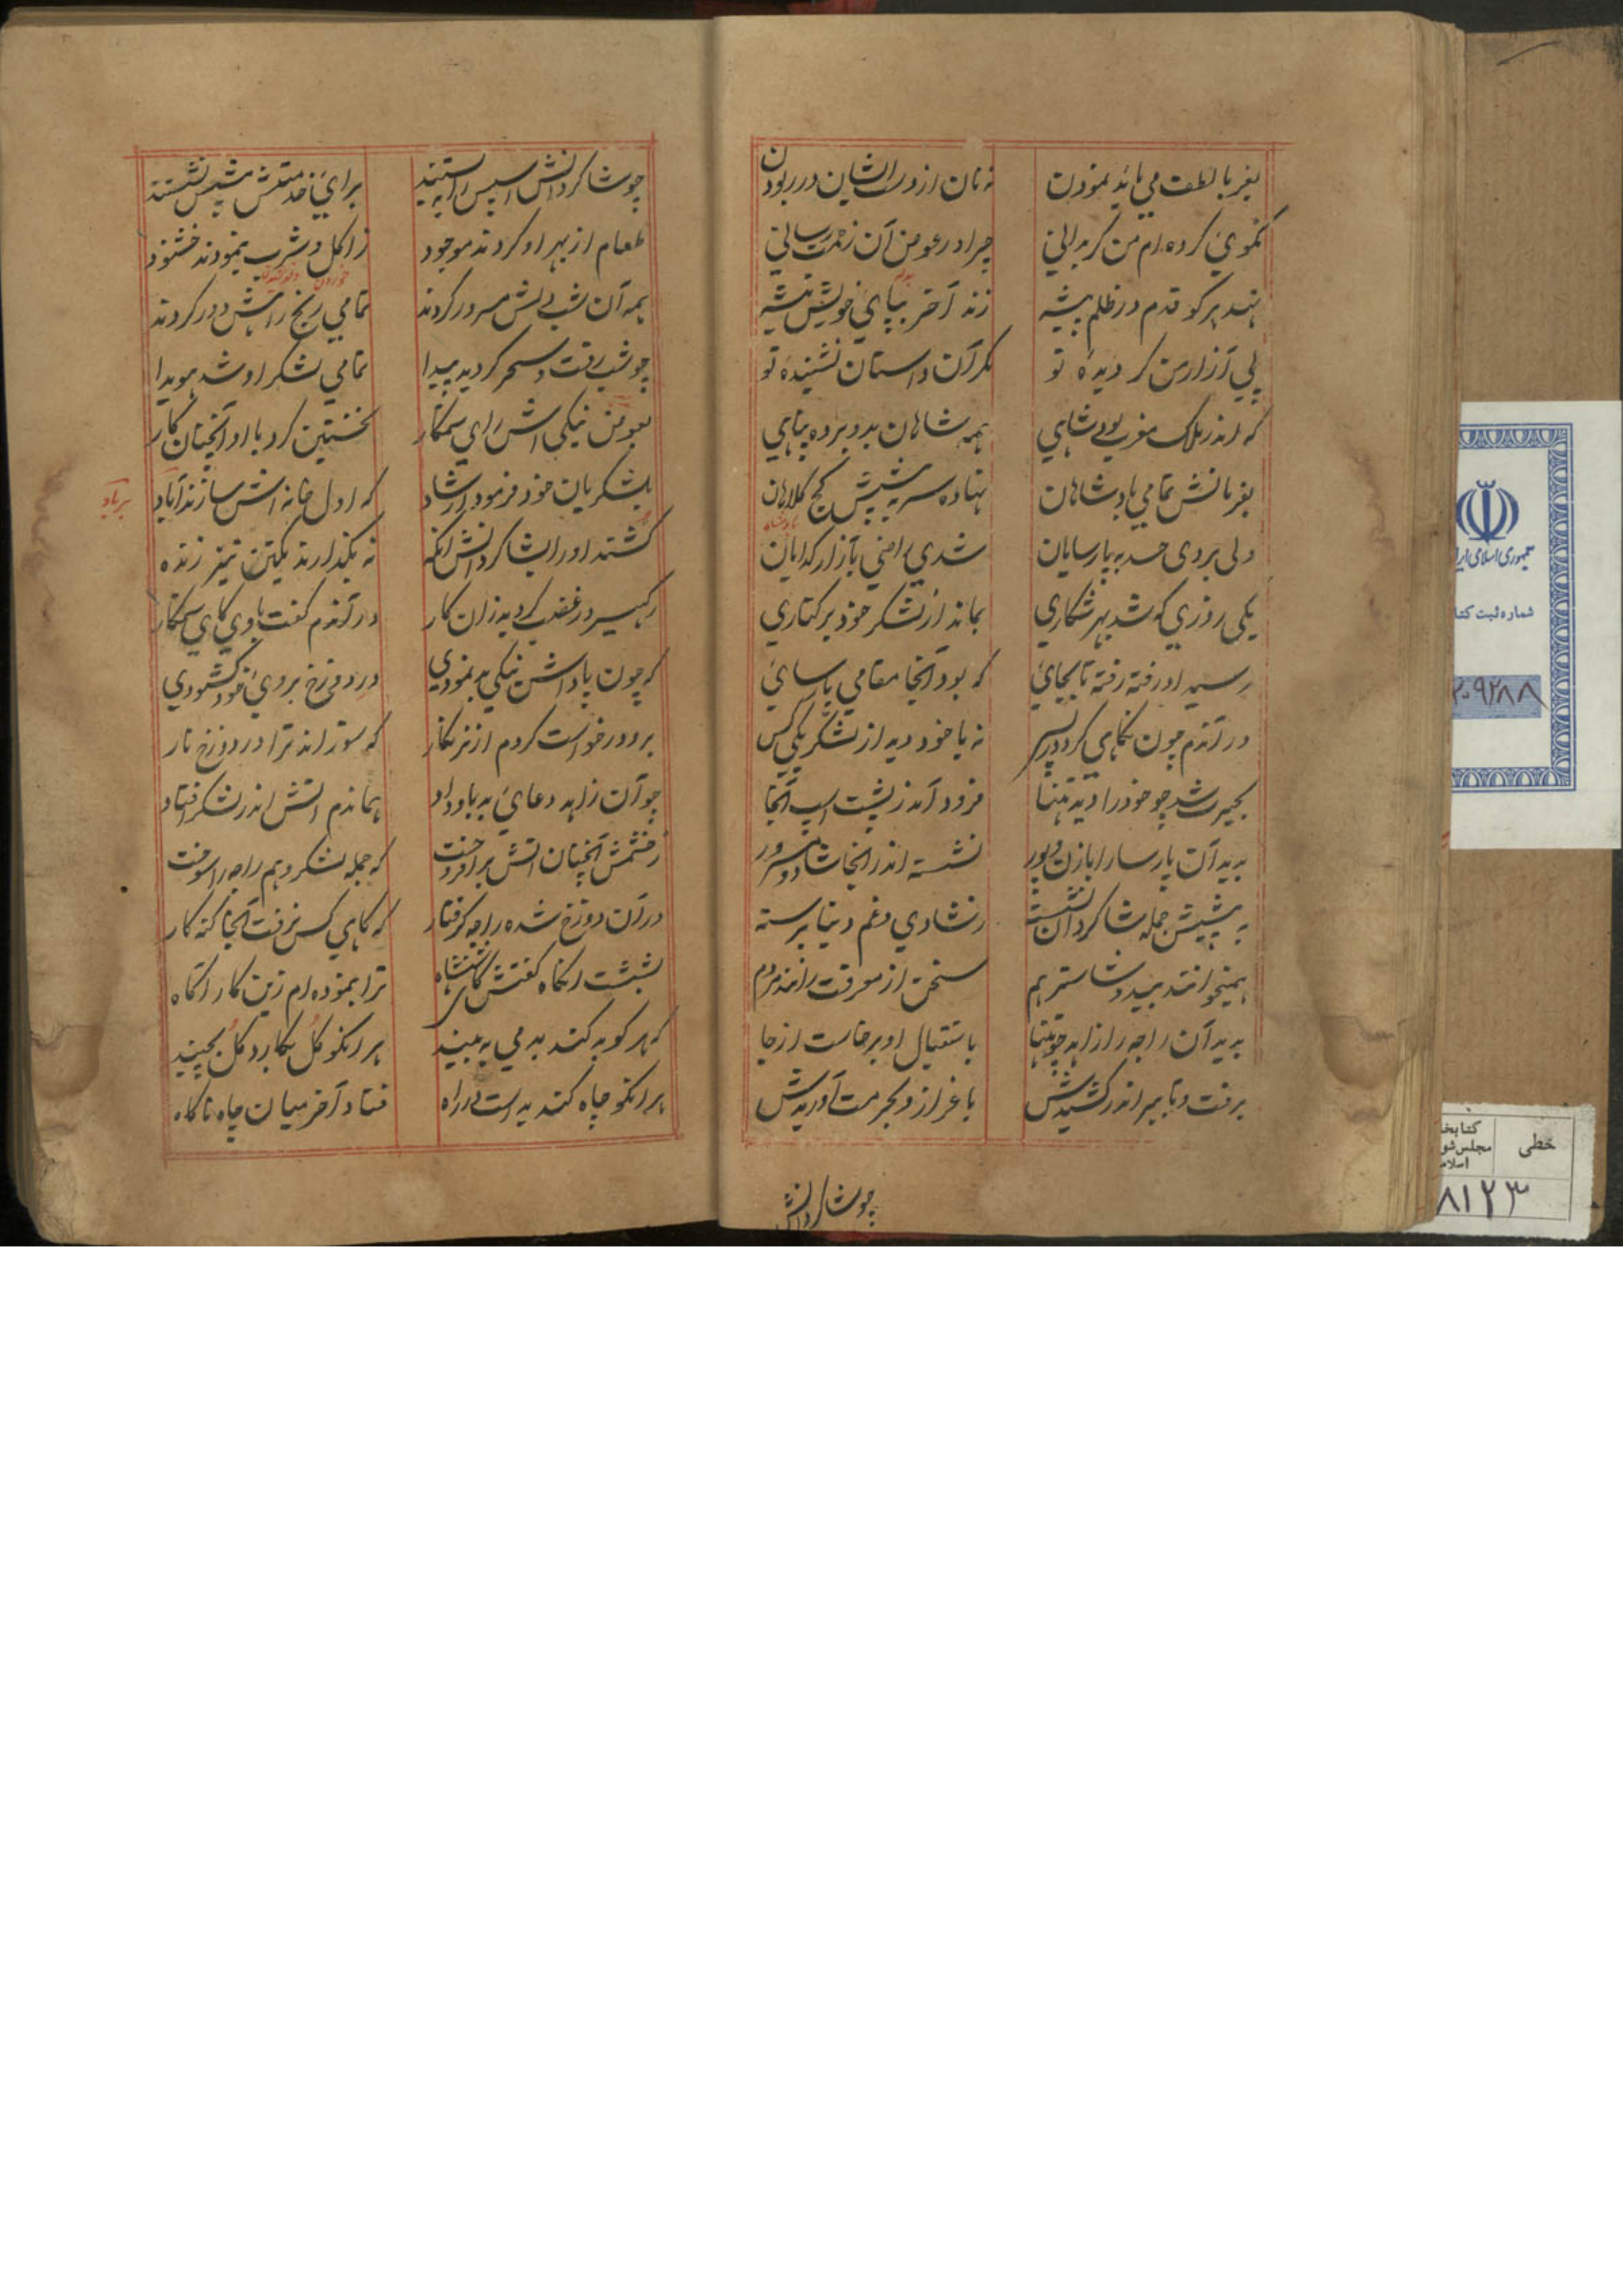 بغربا لطف می باید نمودن
نه نان از دست ایشان در ربودن
نکوئی کرده ام من گر بدانی
چرا در عوض آن زحمت رسانی
نهد هر کو قدم در ظلم پیشه
زند آخر بپای خویش تیشه
پی آزار من گر دیده تو
مگر آن داستان نشنیده تو
که اندر ملک مغرب بود شاهی
همه شاهان بدو برده پناهی
بفرمانش تمامی پادشاهان
نهاده سر به پیشش کج کلاهان
پادشاه
ولی بردی حسد به پارسایان
شدی راضی بآزار گدایان
یکی روزی که شد بهر شکاری
بماند از لشکر خود بر کناری
رسید او رفته رفته تا بجائی
که بود آنجا مقامی پارسائی
در آندم چون نگاهی کرد در پس
نه با خود دید از لشکر یکی کس
بحیرت شد چو خود را دید تنها
فرود آمد ز پشت اسپ آنجا
بدید آن پارسا را با زن و پور
نشسته اندر آنجا شاد و مسرور
به پیشش جمله شاگردان نشسته
ز شادی و غم دنیا برسته
همیخوانند بید و شاستر هم
سخن از معرفت رانند مردم
بدید آن راجه را زاهد چو تنها
باستقبال او برخاست از جا
برفت و تا ببر اندر کشیدش
باعزاز و بحرمت آوریدش
چو شاگردانش
چو شاگردانش اسپس را به بستند
برای خدمتش پیشش نشستند
طعام از بهر او کردند موجود
ز اکل و شرب بنمودند خشنود
خوردن و نوشیدن
همه آن شب دلش مسرور کردند
تمامی رنج راهش دور کردند
چو شب رفت و سحر گردید پیدا
تمامی لشکر او شد هویدا
بعوض نیکی اش رای ستمکار
نخستین کرد با او آنچنان کار
بلشکریان خود فرمود ارشاد
که اول خانه اش سازند آباد
برباد
کشتند او را بشاگردانش آنگه
نه بگذارند یکتن نیز زنده
رکهیسر در غضب گردید زان کار
در آندم گفت با وی کای ستمکار
که چون پاداش نیکی بد نمودی
در دوزخ بروی خود گشودی
برو درخواست کردم از نرنکار
که سوزاند ترا در دوزخ نار
چو آن زاهد دعای بد باو داد
هماندم آتش اندر لشکر افتاد
ز خشمش آنچنان آتش برافروخت
که جمله لشکر و هم راجه را سوخت
در آن دوزخ شده راجه گرفتار
که گاهی کس نرفت آنجا گنه کار
بشست آنگاه گفتش کای شهنشاه
ترا بنموده ام زین کار آگاه
که هر کو بد کند بد می به بیند
هر آنکو گل بکارد گل بچیند
هر آنکو چاه کند به راست در راه
فتاد آخر میان چاه ناگاه
جمهوری اسلامی ایر
شماره ثبت کتا
۲۰۹۲۸۸
خطی
کتابخا
مجلس شو
اسلام
۸۱۲۳